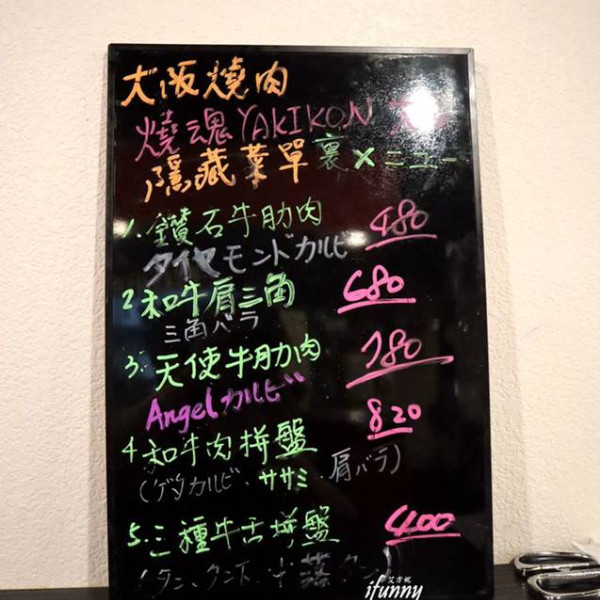 大阪燒肉
燒魂YAKIKON
隱藏菜單 裏メニュー
1.鑽石牛肋肉 480
ダイヤモンドカルビ
2和牛肩三角 680
三角バラ
3.天使牛肋肉 780
Angelカルビ
4和牛肉拼盤 820
(ゲタカルビ.ササミ.肩バラ)
5.三種牛舌拼盤 400
(タン、
艾方妮
ifunny